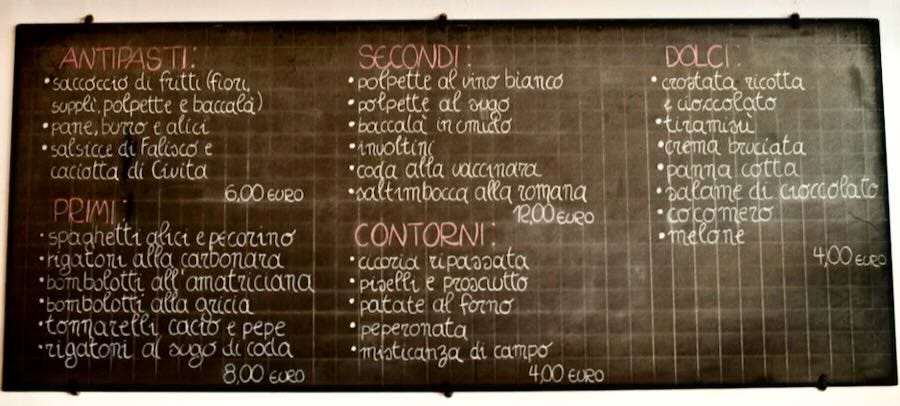 ANTIPASTI:
• saccoccio di fritti (fiori,
supplì, polpette e baccalà)
• pane, burro e alici
• salsicce di Falisco e
caciotta di Civita
6,00 EURO
PRIMI:
• spaghetti alici e pecorino
• rigatoni alla carbonara
• bombolotti all'amatriciana
• bombolotti alla gricia
• tonnarelli cacio e pepe
• rigatoni al sugo di coda
8,00 EURO
SECONDI:
• polpette al vino bianco
• polpette al sugo
• baccalà in umido
• involtini
• coda alla vaccinara
• saltimbocca alla romana
12,00 EURO
CONTORNI:
• cicoria ripassata
• piselli e prosciutto
• patate al forno
• peperonata
• misticanza di campo
4,00 EURO
DOLCI:
• crostata ricotta
e cioccolato
• tiramisù
• crema bruciata
• panna cotta
• salame di cioccolato
• cocomero
• melone
4,00 EURO